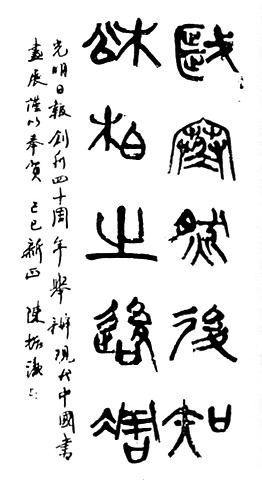 歲寒然後知
松柏之後凋
光明日報創刊四十周年舉辦現代中國書
畫展謹以奉賀 己巳新正 陳振濂上